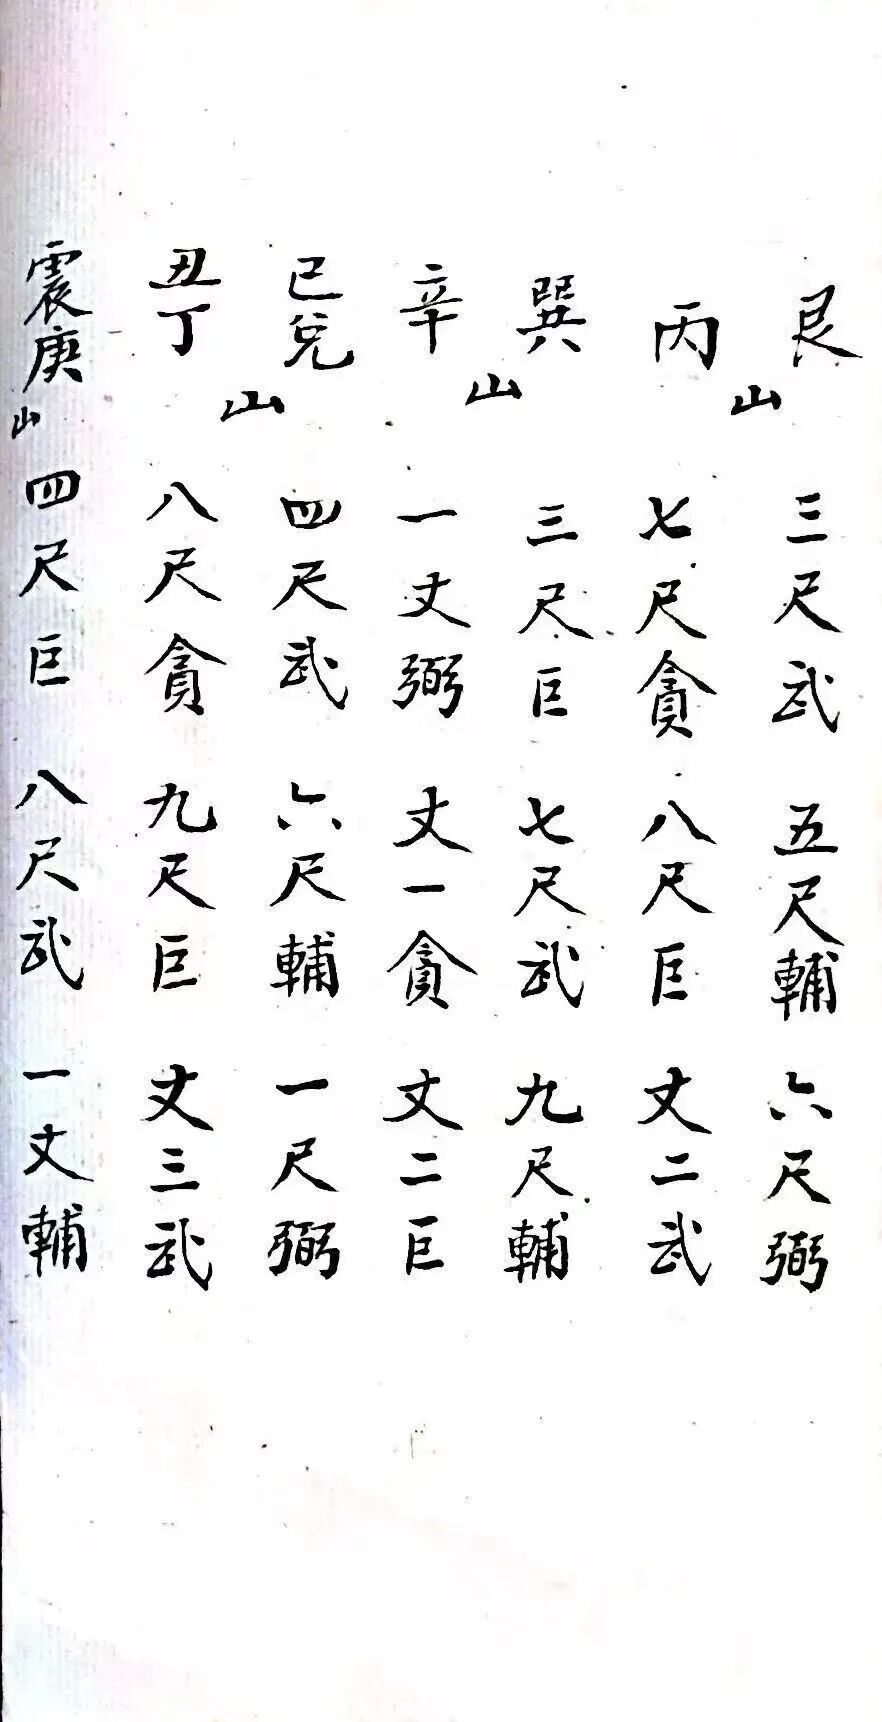 艮 三尺武 五尺輔 六尺弼
山
丙 七尺貪 八尺巨 丈二武
巽 三尺巨 七尺武 九尺輔
山
辛 一丈弼 丈一貪 丈二巨
巳兌 四尺武 六尺輔 一尺弼
山
丑丁 八尺貪 九尺巨 丈三武
震庚山 四尺巨 八尺武 一丈輔